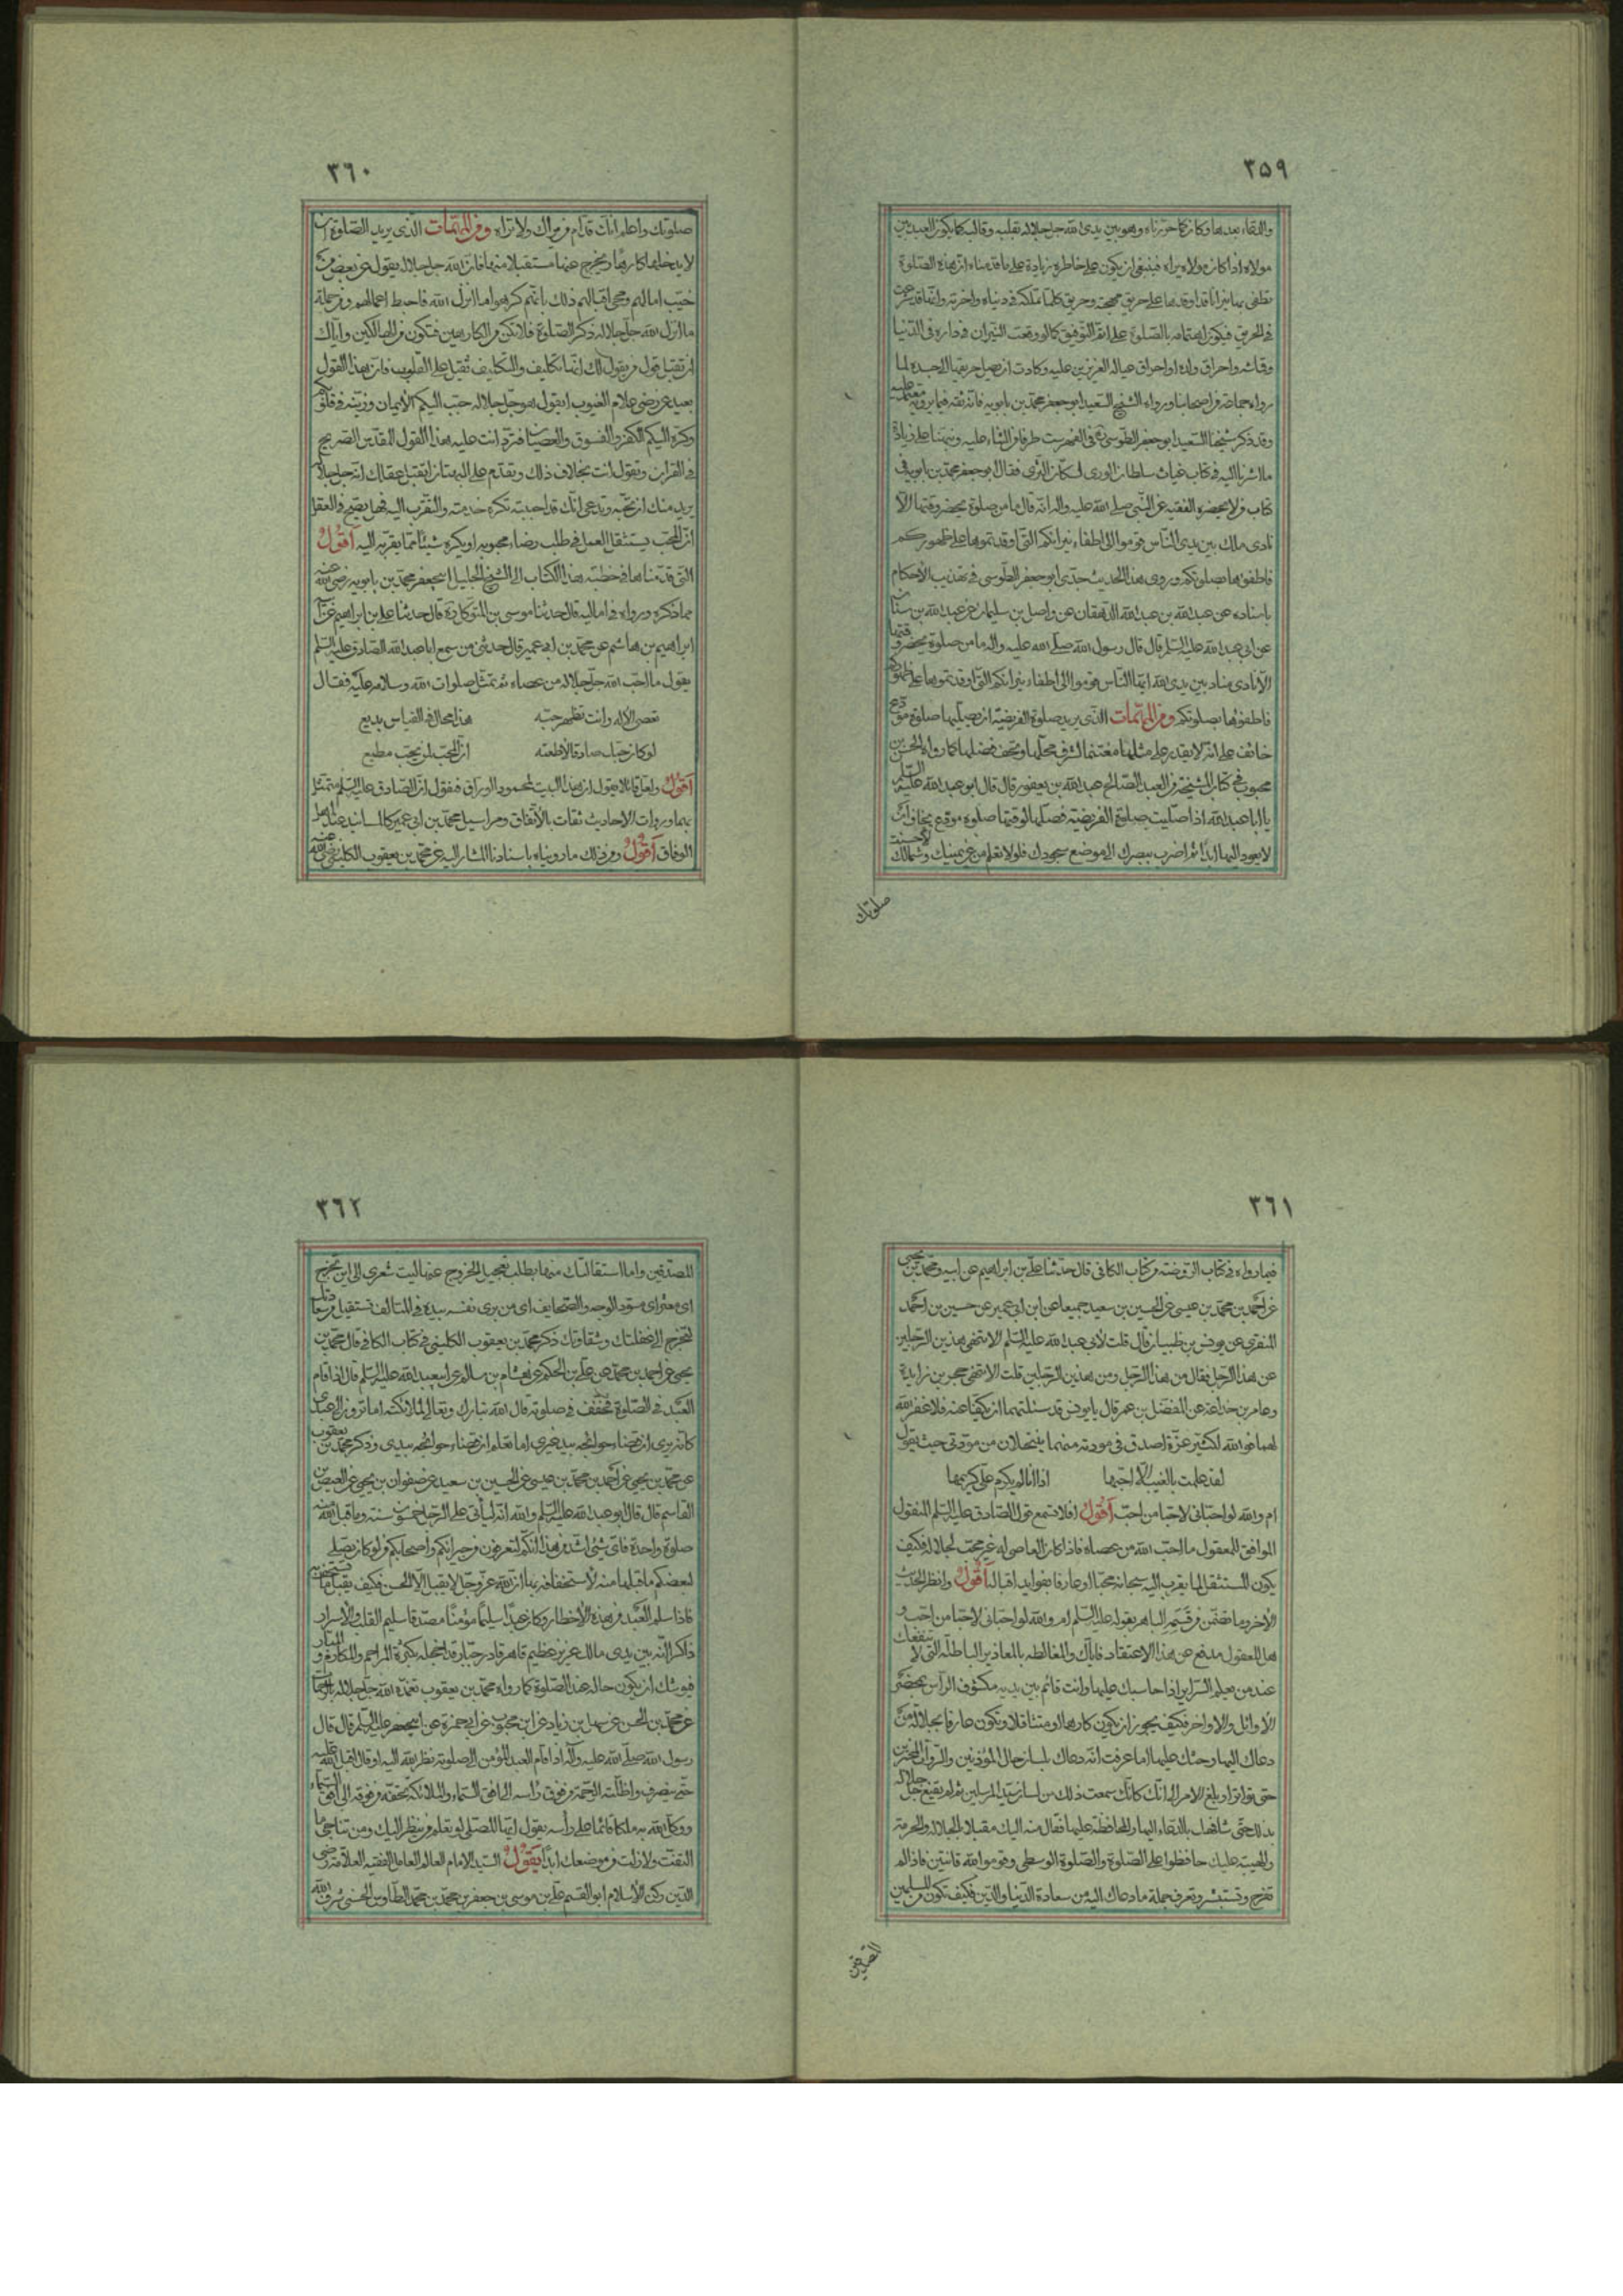 ٣٥٩
مولاه اذا كان مولاه يراه فينبغى ان يكون على خاطره زيادة على ما قدمناه ان هذه الصلوة
فى الحريق فيكون اهتمامه بالصلوة على قدر التوفيق كما لو وقعت النيران فى داره فى الدنيا
وقماشه واحراق ولده او احراق عياله العزيزين عليه وكادت ان يصل حريقها الى جسده لما
رواه جماعة من اصحابنا ورواه الشيخ السعيد ابو جعفر محمد بن بابويه فانه ثقة فيما يرويه معتمد عليه
وقد ذكر شيخنا السعيد ابو جعفر الطوسى فى الفهرست طرفا من الثناء عليه ونبهنا على زيادة
ما اشرنا اليه فى كتاب غياث سلطان الورى لسكان الثرى فقال ابو جعفر محمد بن بابويه فى
كتاب من لا يحضره الفقيه عن النبى صلى الله عليه واله انه قال ما من صلوة يحضر وقتها الا
نادى ملك بين يدى الناس قوموا الى اطفاء نيرانكم التى اوقدتموها على ظهوركم
فاطفئوها بصلوتكم وروى هذا الحديث جدى ابو جعفر الطوسى فى تهذيب الاحكام
باسناده عن عبد الله بن عبد الله الدهقان عن واصل بن سليمان عن عبد الله بن سنان
عن ابى عبد الله عليه السلم قال قال رسول الله صلى الله عليه واله ما من صلوة يحضر وقتها
الا نادى مناد بين يدى الله ايها الناس قوموا الى اطفاء نيرانكم التى اوقدتموها على ظهوركم
فاطفئوها بصلوتكم ومن المهمات الذى يريد صلوة الفريضة ان يصليها صلوة مودع
خائف على انه لا يقدر على مثلها مغتنما لشرف محلها ومتحف فضلها كما رواه الحسن بن
محبوب فى كتاب المشيخة عن العبد الصالح عبد الله بن يعفور قال قال ابو عبد الله عليه السلم
يا ابا عبد الله اذا صليت صلوة الفريضة فصلها لوقتها صلوة مودع يخاف ان
لا يعود اليها ابدا ثم اضرب ببصرك الى موضع سجودك فلو لا تعلم من عن يمينك وشمالك لاحسنت
صلوتك
٣٦٠
صلوتك واعلم انك قدام من يراك ولا تراه ومن المهمات الذى يريد الصلوة ان
لا يدخلها كارها ويخرج عنها مستقيلا منها فان الله جل جلاله يقول عن بعض من
خيب امالهم ومحى اقبالهم ذلك بانهم كرهوا ما انزل الله فاحبط اعمالهم ومن جملة
ما انزل الله جل جلاله ذكر الصلوة فلا تكن من الكارهين فتكون من الهالكين واياك
ان تقبل قول من يقول لك انها تكاليف والتكاليف ثقيل على القلوب فان هذا القول
بعيد عن رضى علام الغيوب ايقول هو جل جلاله حبب اليكم الايمان وزينه فى قلوبكم
وكره اليكم الكفر والفسوق والعصيان فترد انت عليه هذا القول المقدس الصريح
فى القران وتقول انت بخلاف ذلك وتقدم على البهتان ايقبل عقلك انه جل جلاله
يريد منك ان تحبه وتدعى انك قد احببته تكره خدمته والتقرب اليه فهل يصح فى العقل
ان المحب يستثقل العمل فى طلب رضاء محبوبه او يكره شيئا مما يقربه اليه اقول
التى قدمناها فى خطبة هذا الكتاب الى الشيخ الجليل ابى جعفر محمد بن بابويه رضى الله عنه
مما ذكره ورواه فى اماليه قال حدثنا موسى بن المتوكل ره قال حدثنا على بن ابراهيم عن
ابراهيم بن هاشم عن محمد بن ابى عمير قال حدثنى من سمع ابا عبد الله الصادق عليه السلم
يقول ما احب الله جل جلاله من عصاه ثم تمثل صلوات الله وسلامه عليه فقال
تعصى الاله وانت تظهر حبه هذا محال فى القياس بديع
لو كان حبك صادقا لاطعته ان المحب لمن يحب مطيع
اقول ولعل قائلا يقول ان هذا البيت لمحمود الوراق فنقول ان الصادق عليه السلم تمثل
بهما ورواة الاحاديث ثقات بالاتفاق ومراسيل محمد بن ابى عمير كالمسانيد عند اهل
الوفاق اقول ومن ذلك ما رويناه باسنادنا المشار اليه عن محمد بن يعقوب الكلينى رضى الله عنه
٣٦١
فيما رواه فى كتاب الروضة من كتاب الكافى قال حدثنا على بن ابراهيم عن ابيه ومحمد بن يحيى
عن احمد بن محمد بن عيسى عن الحسين بن سعيد جميعا عن ابن ابى عمير عن حسين بن احمد
المنقرى عن يونس بن ظبيان قال قلت لابى عبد الله عليه السلم الا تنهى هذين الرجلين
عن هذا الرجل فقال من هذا الرجل ومن هذين الرجلين قلت الا تنهى حجر بن زايدة
وعامر بن جذاعة عن المفضل بن عمر قال يا يونس قد سئلتهما ان يكفا عنه فلا غفر الله
لهما فو الله لكثير عزة اصدق فى مودته منهما ينتحلان من مودتى حيث يقول
لقد علمت بالغيب الا احبها اذا انا لم يكرم على كريمها
ام والله لو احبانى لاحبا من احب اقول افلا تسمع قول الصادق عليه السلم المنقول
الموافق للمعقول ما احب الله من عصاه فاذا كان العاصى له غير محب لجلاله فكيف
يكون المستثقل لما يقرب اليه سبحانه محبا او عارفا بفوايد اقباله اقول وانظر الحديث
الاخر وما تضمن من قسمه الباهر بقوله عليه السلم ام والله لو احبانى لاحبا من احب و
هل للعقول مدفع عن هذا الاعتقاد فاياك والمغالطة بالمعاذير الباطلة التى لا تنفعك
عند من يعلم السراير اذا حاسبك عليها وانت قائم بين يديه مكشوف الراس بمحضر
الاوائل والاواخر فكيف يجوز ان يكون كارها او متثاقلا وتكون عارفا بجلالة من
دعاك اليها وحثك عليها اما عرفت انه دعاك بلسان حال المؤذنين
حتى تواتر او بلغ الامر الى انك كانك سمعت ذلك من لسان سيد المرسلين ثم لم يقنع جل جلاله
بذلك حتى شافهك بالدعاء اليها والمحافظة عليها فقال منه اليك مقبلا بالجلالة والحرمة
والهيبة عليك حافظوا على الصلوة والصلوة الوسطى وقوموا لله قانتين فاذا لم
تفرح وتستبشر وتعرف جملة ما دعاك اليه من سعادة الدنيا والدين فكيف تكون من المسلمين
المصدقين
٣٦٢
المصدقين واما استقالتك منها بطلب تعجيل الخروج عنها ليت شعرى الى اين تخرج
اى معثر اى مسود الوجه والصحايف اى من يرى نفسه بيده فى المتالف
لتخرج الى غفلتك وشقاوتك ذكر محمد بن يعقوب الكلينى فى كتاب الكافى قال محمد بن
يحيى عن احمد بن محمد عن على بن الحكم عن هشام بن سالم عن ابى عبد الله عليه السلم قال اذا قام
العبد فى الصلوة فخفف فى صلوته قال الله تبارك وتعالى لملائكته اما ترون الى عبدى
كانه يرى ان قضاء حوائجه بيد غيرى اما تعلم ان قضاء حوائجه بيدى وذكر محمد بن يعقوب
عن محمد بن يحيى عن احمد بن محمد بن عيسى عن الحسين بن سعيد عن صفوان بن يحيى عن العيص بن
القاسم قال قال ابو عبد الله عليه السلم والله انه ليأتى على الرجل خمسون سنة وما قبل الله منه
صلوة واحدة فاى شئ اشد من هذا انكم لتعرفون من جيرانكم واصحابكم من لو كان يصلى
لبعضكم ما قبلها منه لاستخفافه بها ان الله عز وجل لا يقبل الا الحسن فكيف يقبل ما يستخف به
فاذا سلم العبد من هذه الاخطار وكان عبدا سليما مؤمنا مصدقا سليم القلب والاسرار
ذاكرا انه بين يدى مالك عزيز عظيم قاهر قادر جبار
فيوشك ان يكون حاله عند الصلوة كما رواه محمد بن يعقوب تغمده الله جل جلاله بالرحمة
عن محمد بن الحسن عن سهل بن زياد عن ابن محبوب عن ابى حمزة عن ابى جعفر عليه السلم قال قال
رسول الله صلى الله عليه واله اذا قام العبد المؤمن الى صلوته نظر الله اليه او قال اقبل الله عليه
حتى ينصرف واظلته الرحمة من فوق راسه الى افق السماء والملائكة تحفه من فوقه الى افق السماء
ووكل الله به ملكا قائما على رأسه يقول ايها المصلى لو تعلم من ينظر اليك ومن تناجى ما
التفت ولا زلت من موضعك ابدا يقول السيد الامام العالم العامل الفقيه العلامة رضى
الدين ركن الاسلام ابو القسم على بن موسى بن جعفر بن محمد بن محمد الطاوس الحسنى شرف الله